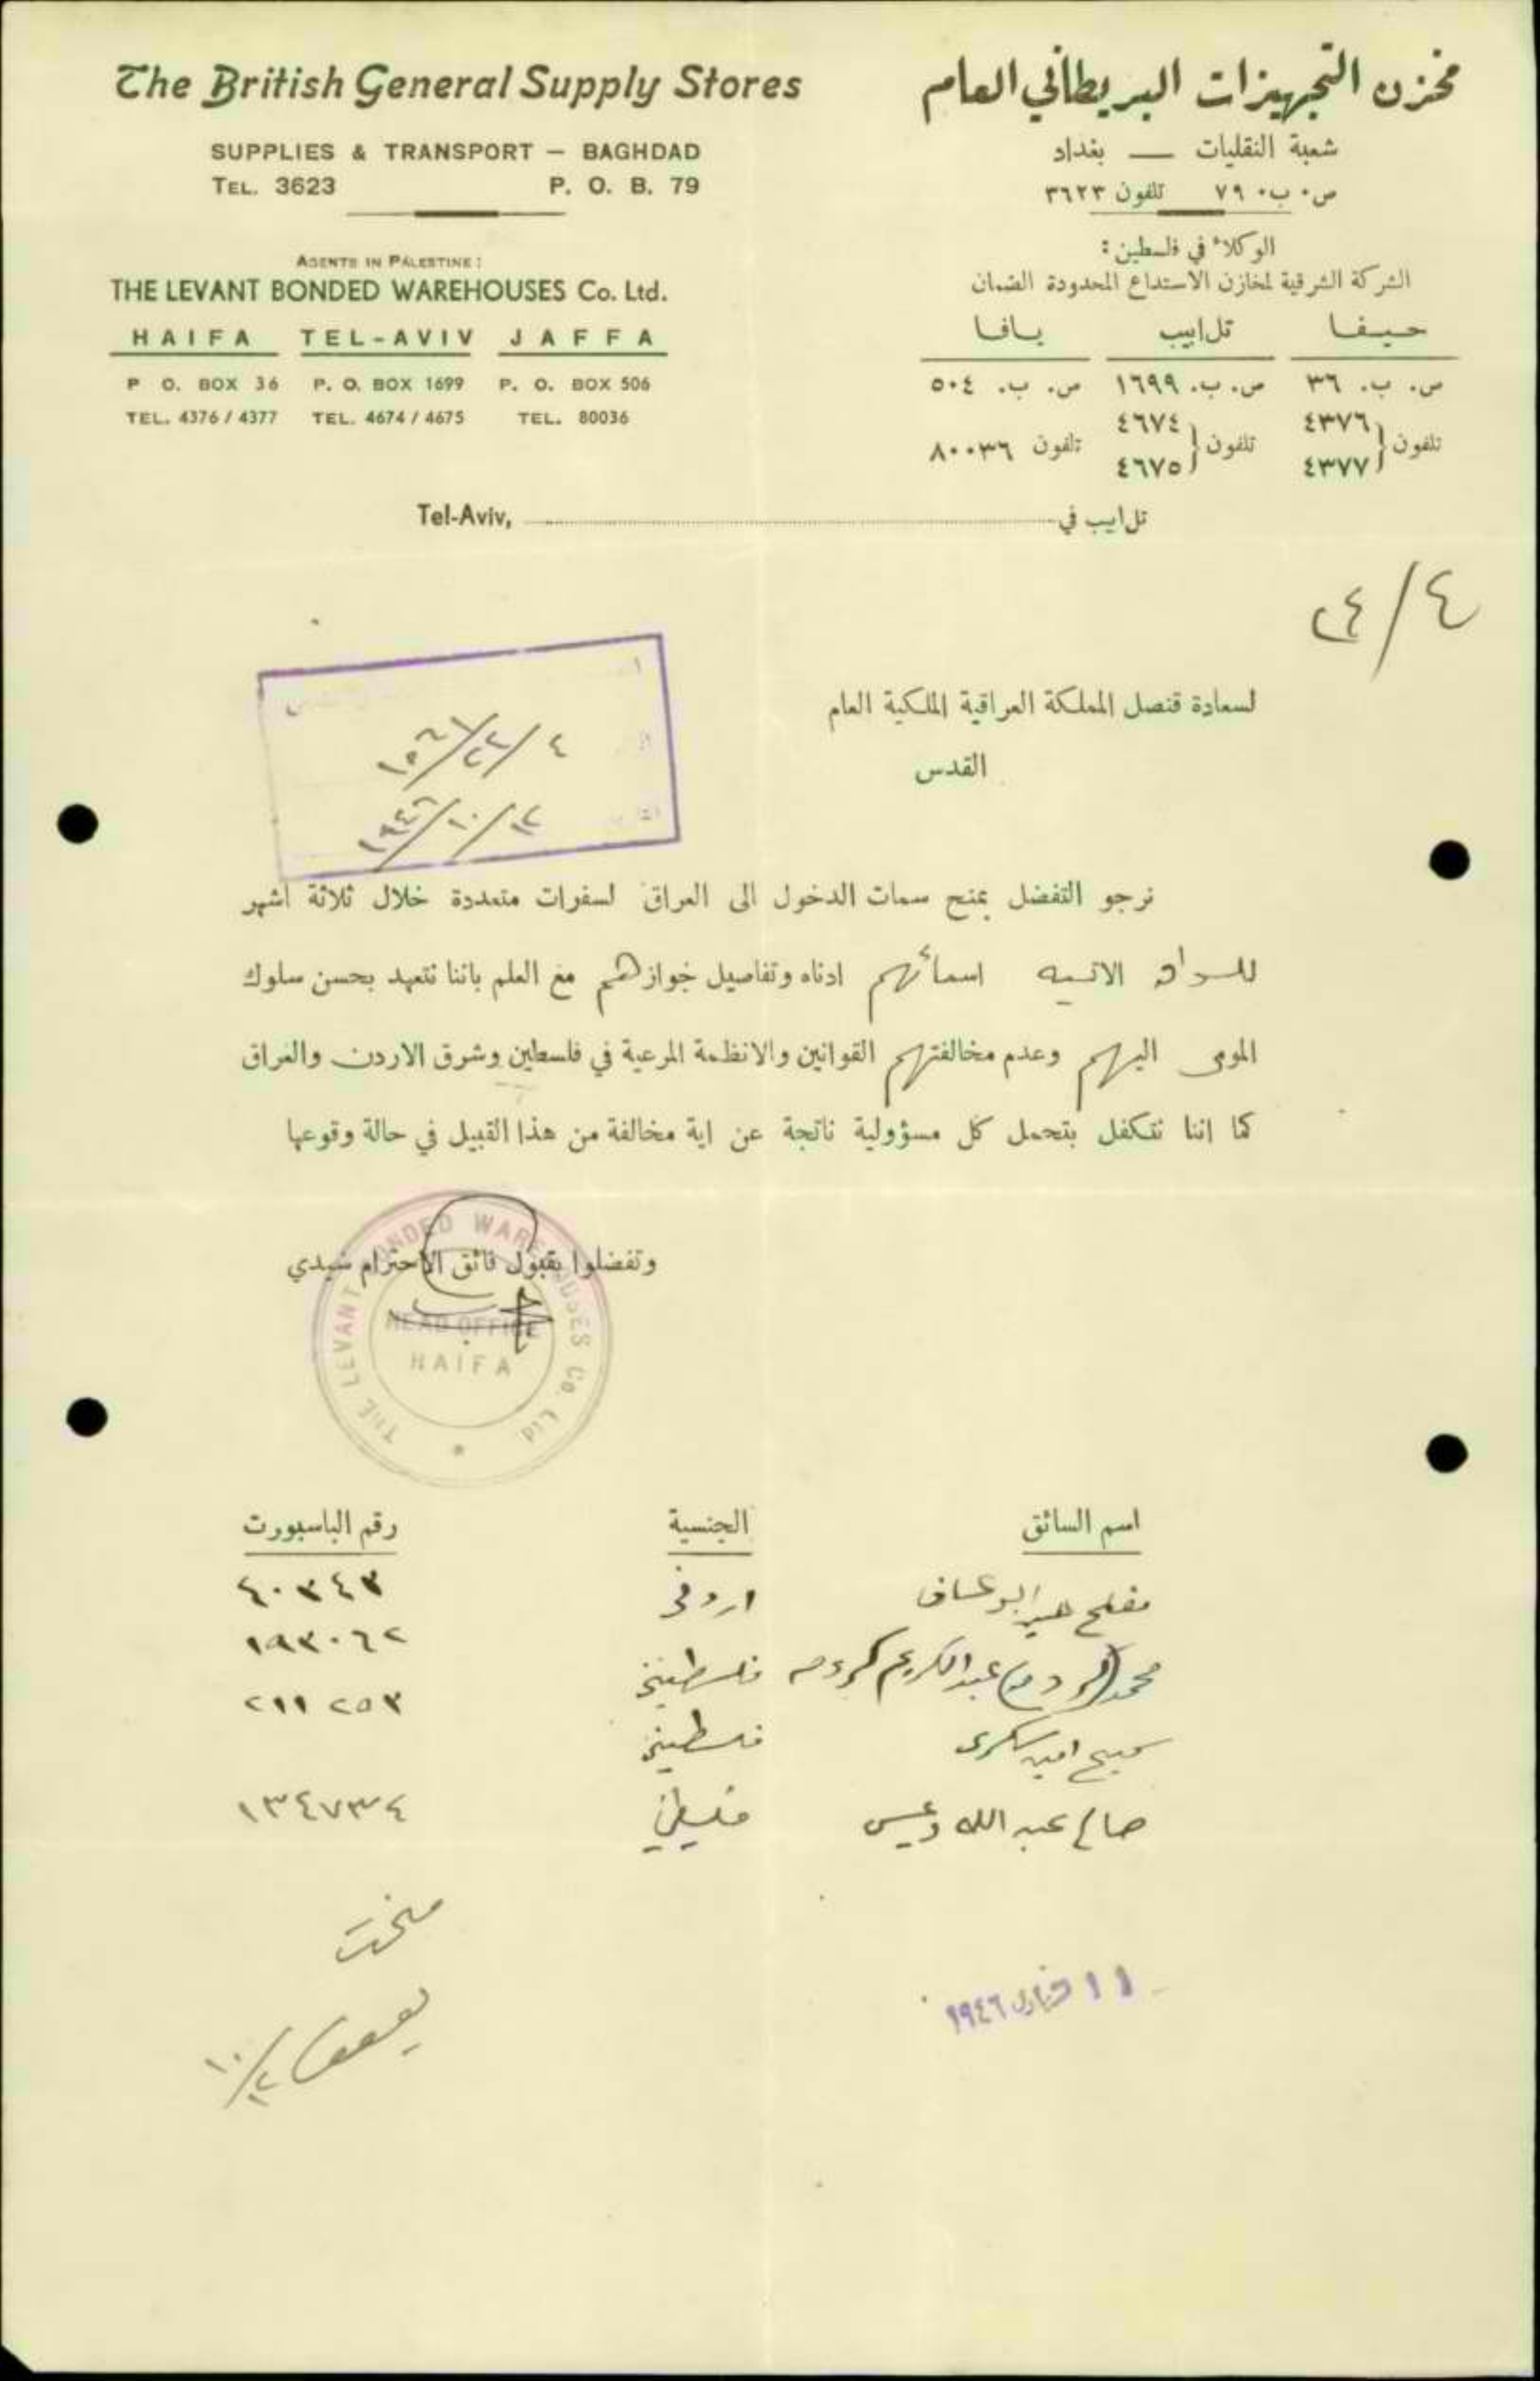 The British General Supply Stores
SUPPLIES & TRANSPORT — BAGHDAD
TEL. 3623 P. O. B. 79
AGENTS IN PALESTINE:
THE LEVANT BONDED WAREHOUSES Co. Ltd.
HAIFA TEL-AVIV JAFFA
P O. BOX 36 P. O. BOX 1699 P. O. BOX 506
TEL. 4376 / 4377 TEL. 4674 / 4675 TEL. 80036
مخزن التجهيزات البريطاني العام
شعبة النقليات — بغداد
ص. ب. ٧٩ تلفون ٣٦٢٣
الوكلاء في فلسطين:
الشركة الشرقية لمخازن الاستداع المحدودة الضمان
حيفا تل ابيب يافا
ص. ب. ٣٦ ص. ب. ١٦٩٩ ص. ب. ٥٠٤
تلفون ٤٣٧٦ ٤٣٧٧ تلفون ٤٦٧٤ ٤٦٧٥ تلفون ٨٠٠٣٦
Tel-Aviv, تل ابيب في
٤/٤٢
لسعادة قنصل المملكة العراقية الملكية العام
القدس
٤/٢٢/١٥٦٦
١٢/١٠/١٩٤٦
نرجو التفضل بمنح سمات الدخول الى العراق لسفرات متعددة خلال ثلاثة اشهر
للسواق الاتيه اسمائهم ادناه وتفاصيل جوازهم مع العلم باننا نتعهد بحسن سلوك
المومى اليهم وعدم مخالفتهم القوانين والانظمة المرعية في فلسطين وشرق الاردن والعراق
كما اننا نتكفل بتحمل كل مسؤولية ناتجة عن اية مخالفة من هذا القبيل في حالة وقوعها
وتفضلوا بقبول فائق الاحترام سيدي
THE LEVANT BONDED WAREHOUSES Co. Ltd
HEAD OFFICE
HAIFA
اسم السائق الجنسية رقم الباسبورت
مفلح ابو عساف اردني ٤٠٣٤٣
محمد عبد الكريم فلسطيني ١٩٣٠٦٢
سميح امين سكري فلسطيني ٢١١٢٥٣
صالح عبد الله دعيس فلسطيني ١٣٤٧٣٤
منحت
١٠/١٢
١١ ١٩٤٦